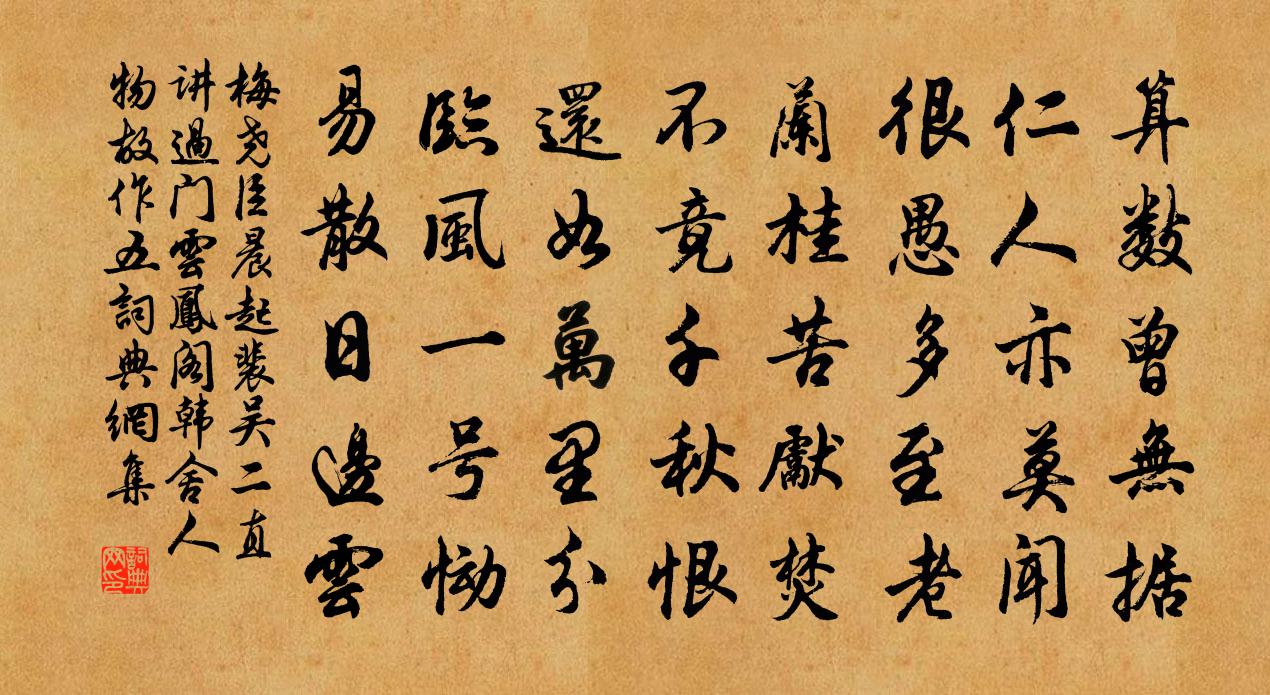 算數曾無据
仁人亦莫聞
很愚多至老
蘭桂苦獻焚
不竟千秋恨
還如萬里分
臨風一号慟
易散日邊雲
梅尧臣晨起裴吴二直
讲過门雲鳳阁韩舍人
物故作五詞典網集
詞典網印